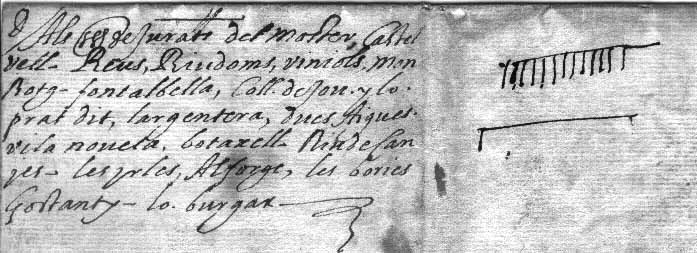 Als SSrs de Jurats del Moster, Castel
vell. Reus, Riudoms, viniols, mon
Rotg - fontalbella, Coll. de Jou. y lo.
prat dit, largentera, dues Aigues.
vila noveta, botarell. Riudecan
yes - les yrles, Alforge, les bories
Gostanty - lo. burgar -